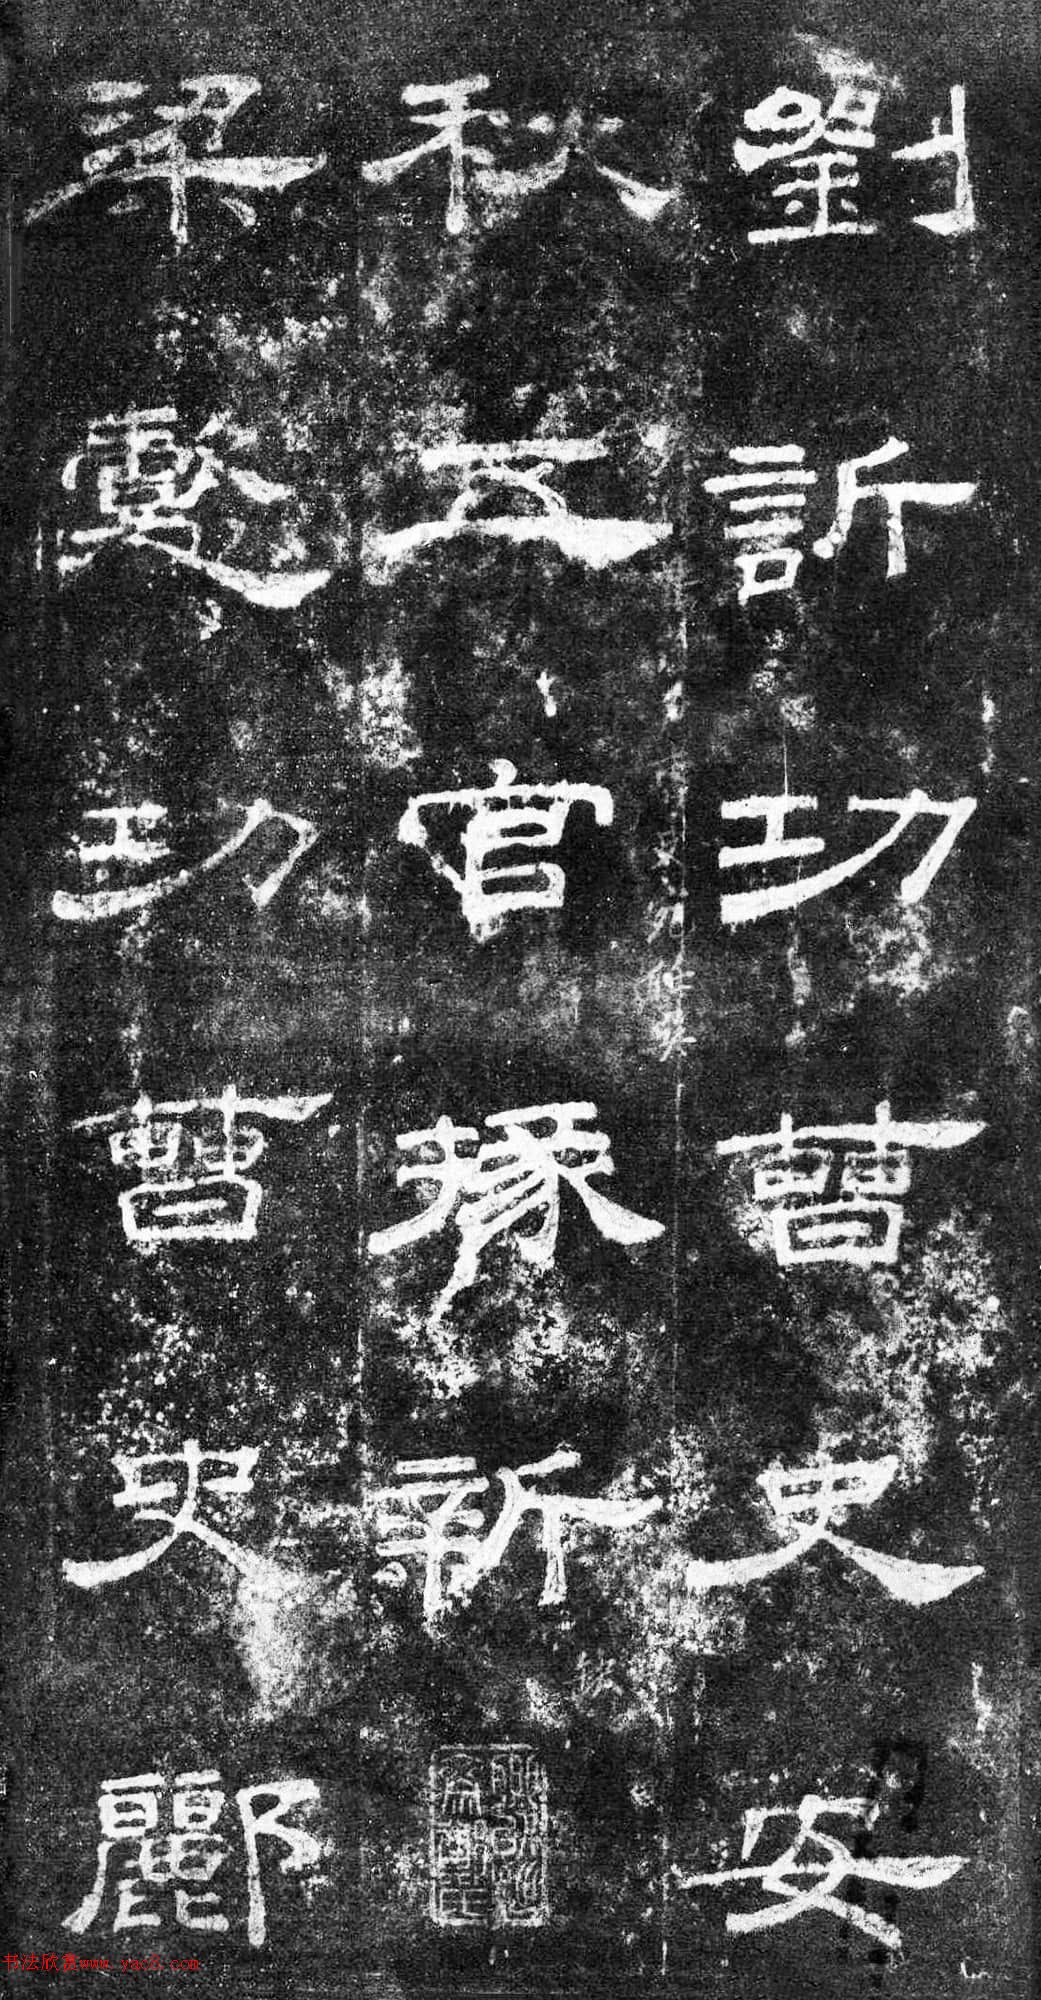 劉訢功曹史安
秋五官掾新
梁懿功曹史酈
书法欣赏www.yac8.com